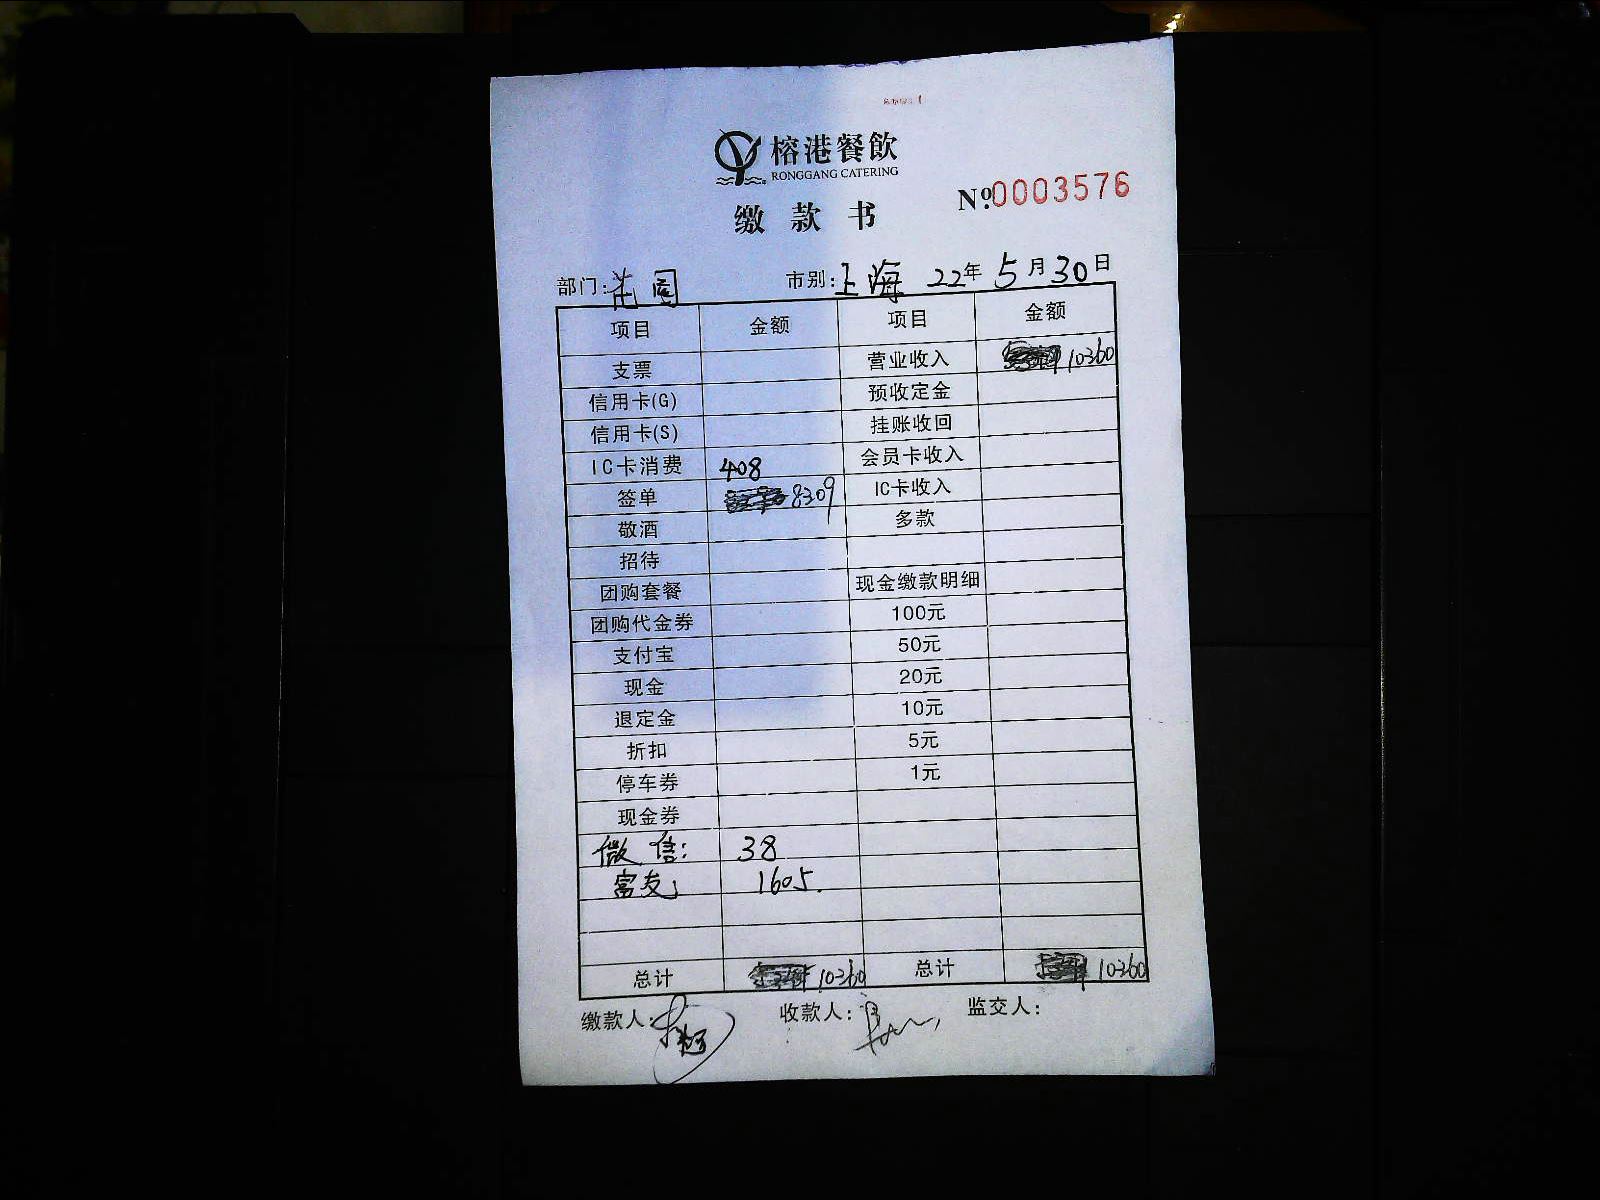 榕港餐飲
RONGGANG CATERING
缴款书
Nº.0003576
部门:花园 市别:上海 22年5月30日
项目 金额 项目 金额
支票 营业收入 10360
信用卡(G) 预收定金
信用卡(S) 挂账收回
IC卡消费 408 会员卡收入
签单 8309 IC卡收入
敬酒 多款
招待
团购套餐 现金缴款明细
团购代金券 100元
支付宝 50元
现金 20元
退定金 10元
折扣 5元
停车券 1元
现金券
微信: 38
富友: 1605.
总计 10360 总计 10360
缴款人: 收款人: 监交人: